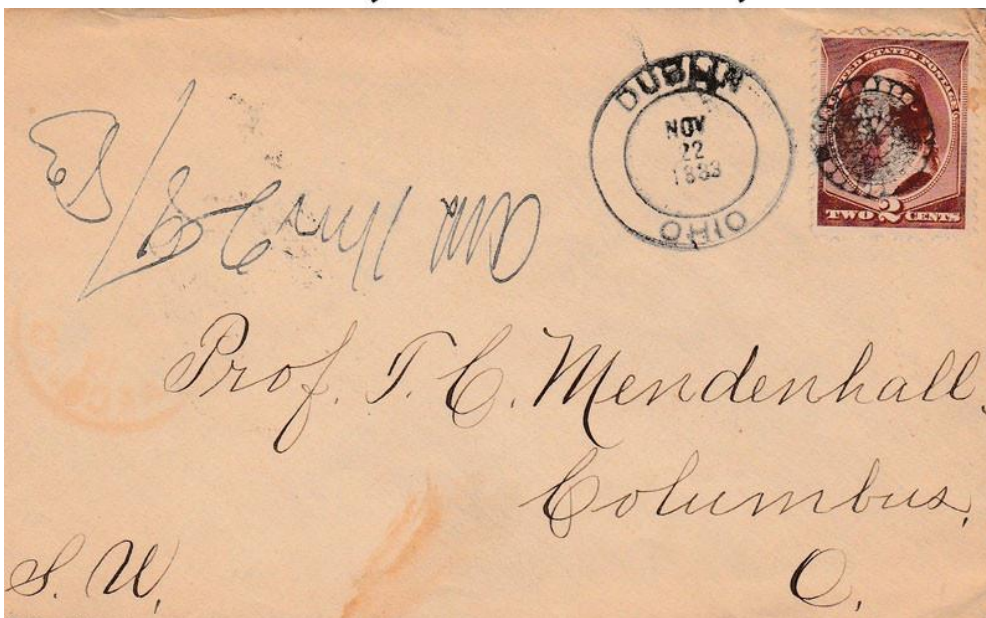 DUBLIN
NOV
22
1883
OHIO
UNITED STATES POSTAGE
TWO 2 CENTS
Prof. T. C. Mendenhall,
Columbus,
O.
S. W.